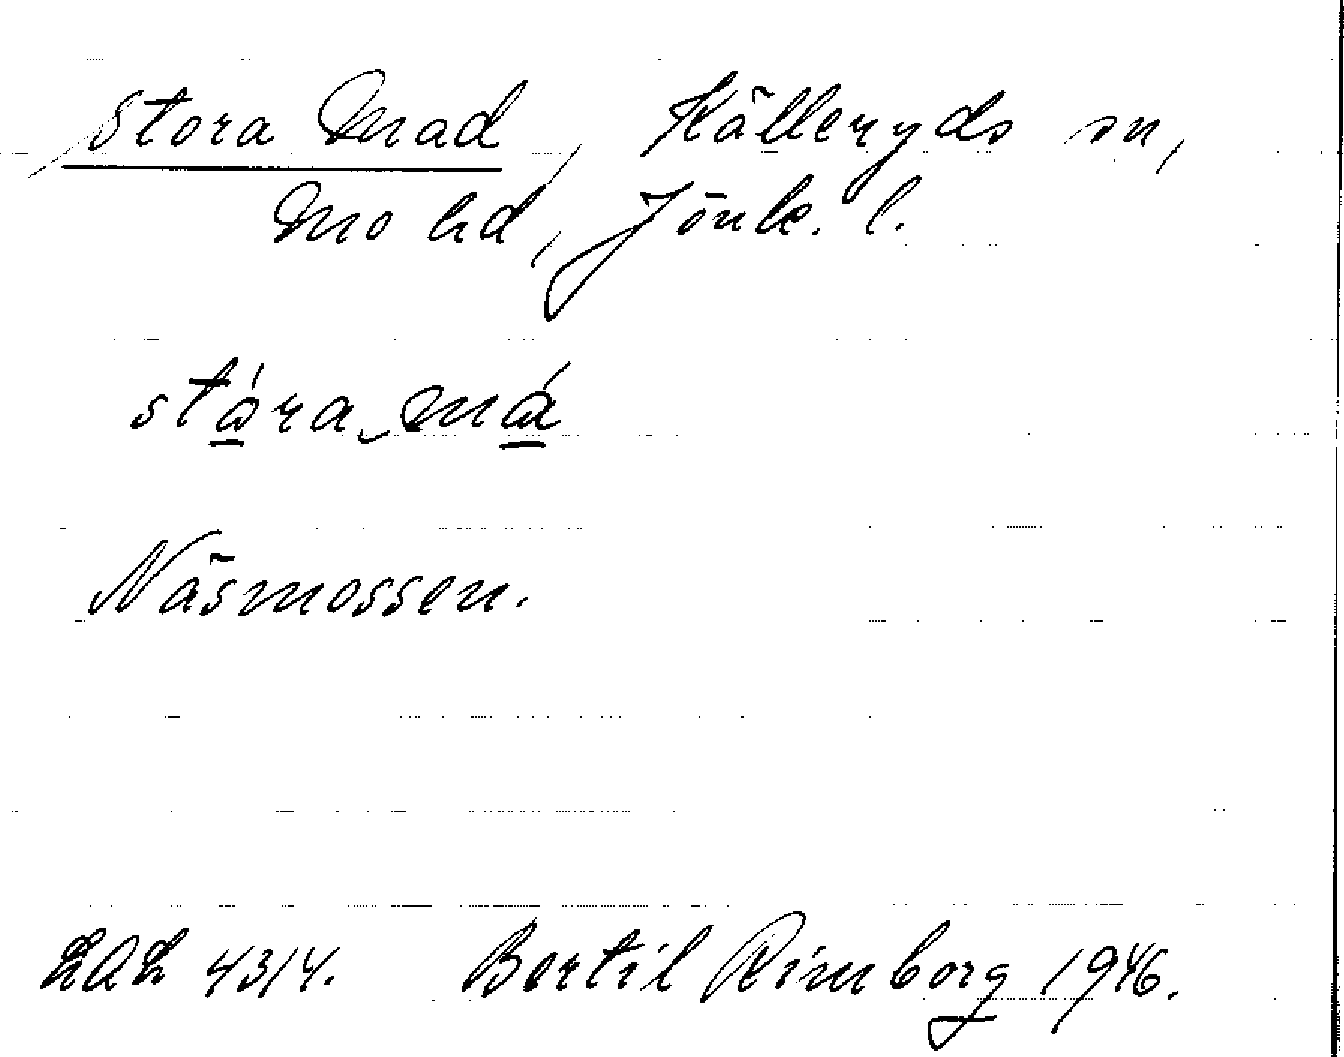 Stora Mad, Källeryds sn,
Mo hd, Jönk. l.
stɷ́ra‿mɑ́
Näsmossen.
LAL 4314. Bertil Rimborg 1946.